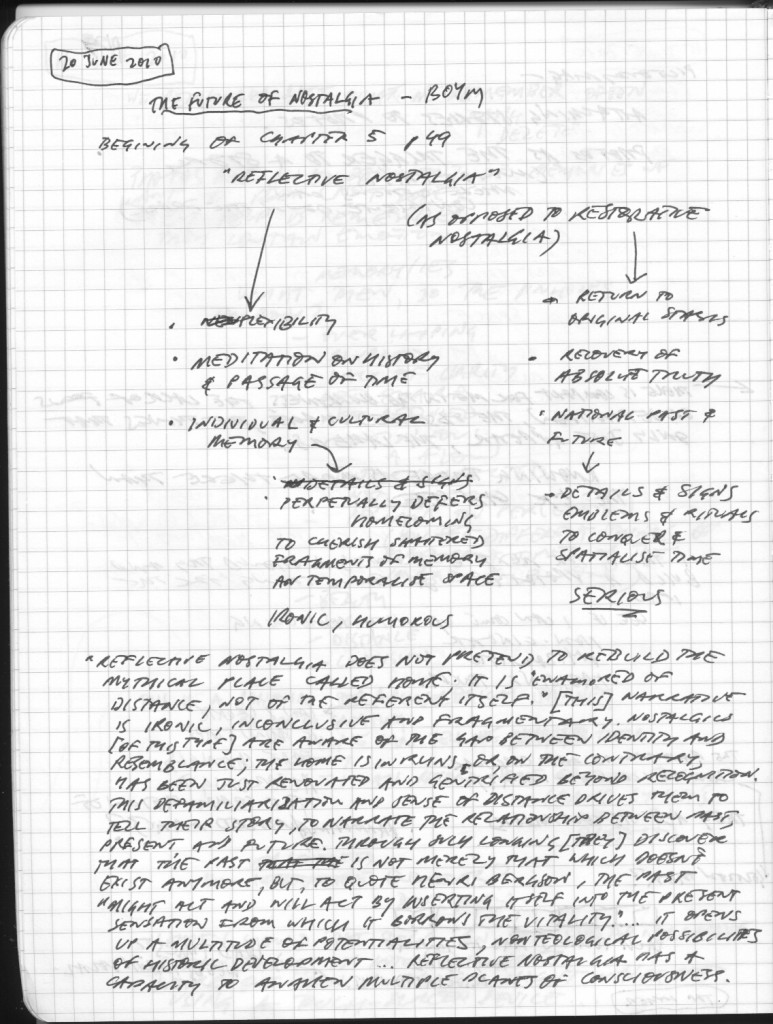 20 JUNE 2020
THE FUTURE OF NOSTALGIA – BOYM
BEGINING OF CHAPTER 5 p49
"REFLECTIVE NOSTALGIA"
(AS OPPOSED TO RESTORATIVE
NOSTALGIA)
• FLEXIBILITY
• MEDITATION ON HISTORY
& PASSAGE OF TIME
• INDIVIDUAL & CULTURAL
MEMORY
• DETAILS & SIGNS
• PERPETUALLY DEFERS
HOMECOMING
TO CHERISH SHATTERED
FRAGMENTS OF MEMORY
AN TEMPORALISE SPACE
IRONIC, HUMOROUS
• RETURN TO
ORIGINAL STASIS
• RECOVERY OF
ABSOLUTE TRUTH
• NATIONAL PAST &
FUTURE
• DETAILS & SIGNS
EMBLEMS & RITUALS
TO CONQUER &
SPATIALISE TIME
SERIOUS
"REFLECTIVE NOSTALGIA DOES NOT PRETEND TO REBUILD THE
MYTHICAL PLACE CALLED HOME; IT IS "ENAMORED OF
DISTANCE, NOT OF THE REFERENT ITSELF." [THIS] NARRATIVE
IS IRONIC, INCONCLUSIVE AND FRAGMENTARY. NOSTALGICS
[OF THIS TYPE] ARE AWARE OF THE GAP BETWEEN IDENTITY AND
RESEMBLANCE; THE HOME IS IN RUINS, OR, ON THE CONTRARY,
HAS BEEN JUST RENOVATED AND GENTRIFIED BEYOND RECOGNITION.
THIS DEFAMILIARIZATION AND SENSE OF DISTANCE DRIVES THEM TO
TELL THEIR STORY, TO NARRATE THE RELATIONSHIP BETWEEN PAST,
PRESENT AND FUTURE. THROUGH SUCH LONGING [THEY] DISCOVER
THAT THE PAST IS NOT MERELY THAT WHICH DOESN'T
EXIST ANYMORE, BUT, TO QUOTE HENRI BERGSON, THE PAST
"MIGHT ACT AND WILL ACT BY INSERTING ITSELF INTO THE PRESENT
SENSATION FROM WHICH IT BORROWS THE VITALITY."... IT OPENS
UP A MULTITUDE OF POTENTIALITIES, NONTEOLOGICAL POSSIBILITIES
OF HISTORIC DEVELOPMENT... REFLECTIVE NOSTALGIA HAS A
CAPACITY TO AWAKEN MULTIPLE PLANES OF CONSCIOUSNESS.